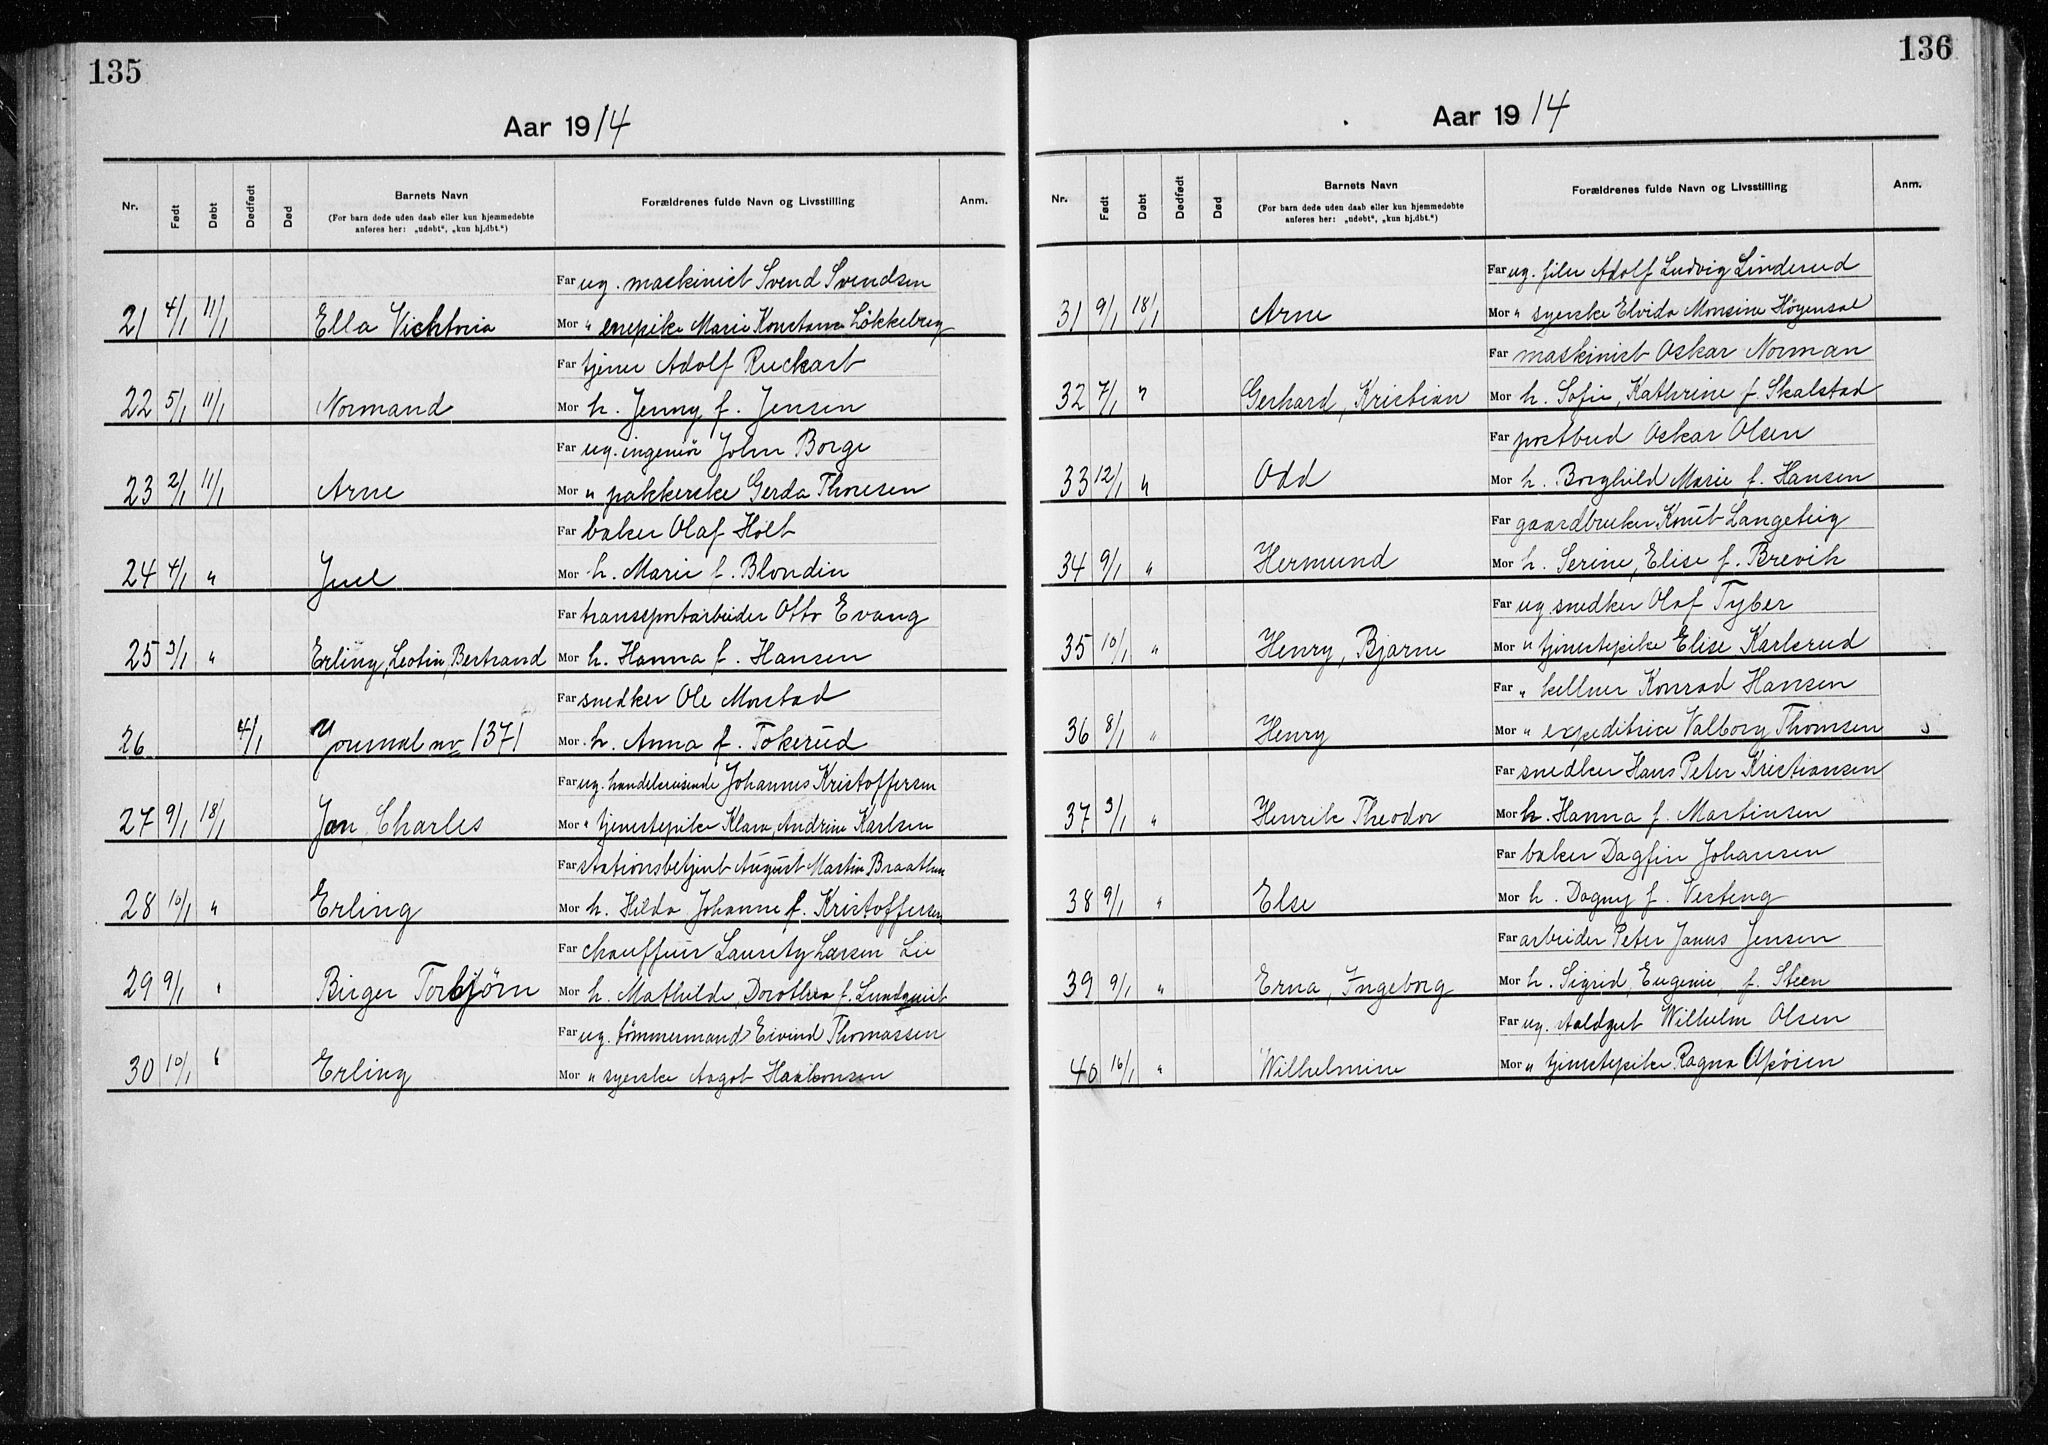 135
Aar 1914
Nr. Født Døbt Dødfødt Død Barnets Navn Forældrenes fulde Navn og Livsstilling Anm.
(For barn døde uden daab eller kun hjemmedøbte
anføres her: „udøbt“, „kun hj.dbt.“)
Far ug. maskinist Svend Svendsen
21 4/1 11/1 Ella Vichtoria Mor " enepike Marie Konstanse Løkkeberg
Far tjener Adolf Ruckart
22 5/1 11/1 Normand Mor h. Jenny f. Jensen
Far ug. ingeniør John Borge
23 2/1 11/1 Arne Mor " pakkerske Gerda Thoresen
Far baker Olaf Holt
24 4/1 " Juel Mor h. Marie f. Blondin
Far transportarbeider Otto Evang
25 3/1 " Erling, Leotin, Bertrand Mor h. Hanna f. Hansen
Far snedker Ole Morstad
26 4/1 Journal nr 1371 Mor h. Anna f. Tokerud
Far ug. handelsreisende Johannes Kristoffersen
27 9/1 18/1 Jan, Charles Mor " tjenestepike Klara, Andrine Karlsen
Far stationsbetjent August Martin Braathen
28 10/1 " Erling Mor h. Hilda Johanne f. Kristoffersen
Far chauffeur Lauritz Larsen Lie
29 9/1 " Birger Torbjørn Mor h. Mathilde, Dorothea f. Lundquist
Far ug. tømmermand Eivind Thomassen
30 10/1 " Erling Mor " syerske Aagot Haakonsen
136
Aar 1914
Nr. Født Døbt Dødfødt Død Barnets Navn Forældrenes fulde Navn og Livsstilling Anm.
(For barn døde uden daab eller kun hjemmedøbte
anføres her: „udøbt“, „kun hj.dbt.“)
Far ug. filer Adolf Ludvig Linderud
31 9/1 18/1 Arne Mor " syerske Elvida Monsine Høgensal
Far maskinist Oskar Norman
32 7/1 " Gerhard, Kristian Mor h. Sofie, Kathrine f. Skalstad
Far postbud Oskar Olsen
33 12/1 " Odd Mor h. Borghild Marie f. Hansen
Far gaardbruker Knut Langeteig
34 9/1 " Hermund Mor h. Serine, Elise f. Brevik
Far ug. snedker Olaf Tyber
35 10/1 " Henry, Bjarne Mor " tjenestepike Elise Karlsrud
Far " kellner Konrad Hansen
36 8/1 " Henry Mor " expeditrice Valborg Thomsen
Far snedker Hans Peter Kristiansen
37 3/1 " Henrik Theodor Mor h. Hanna f. Martinsen
Far baker Dagfin Johansen
38 9/1 " Else Mor h. Dagny f. Vesteng
Far arbeider Peter Janus Jensen
39 9/1 " Erna, Ingeborg Mor h. Sigrid, Eugenie, f. Steen
Far ug. staldgut Wilhelm Olsen
40 10/1 " Wilhelmine Mor " tjenestepike Ragna